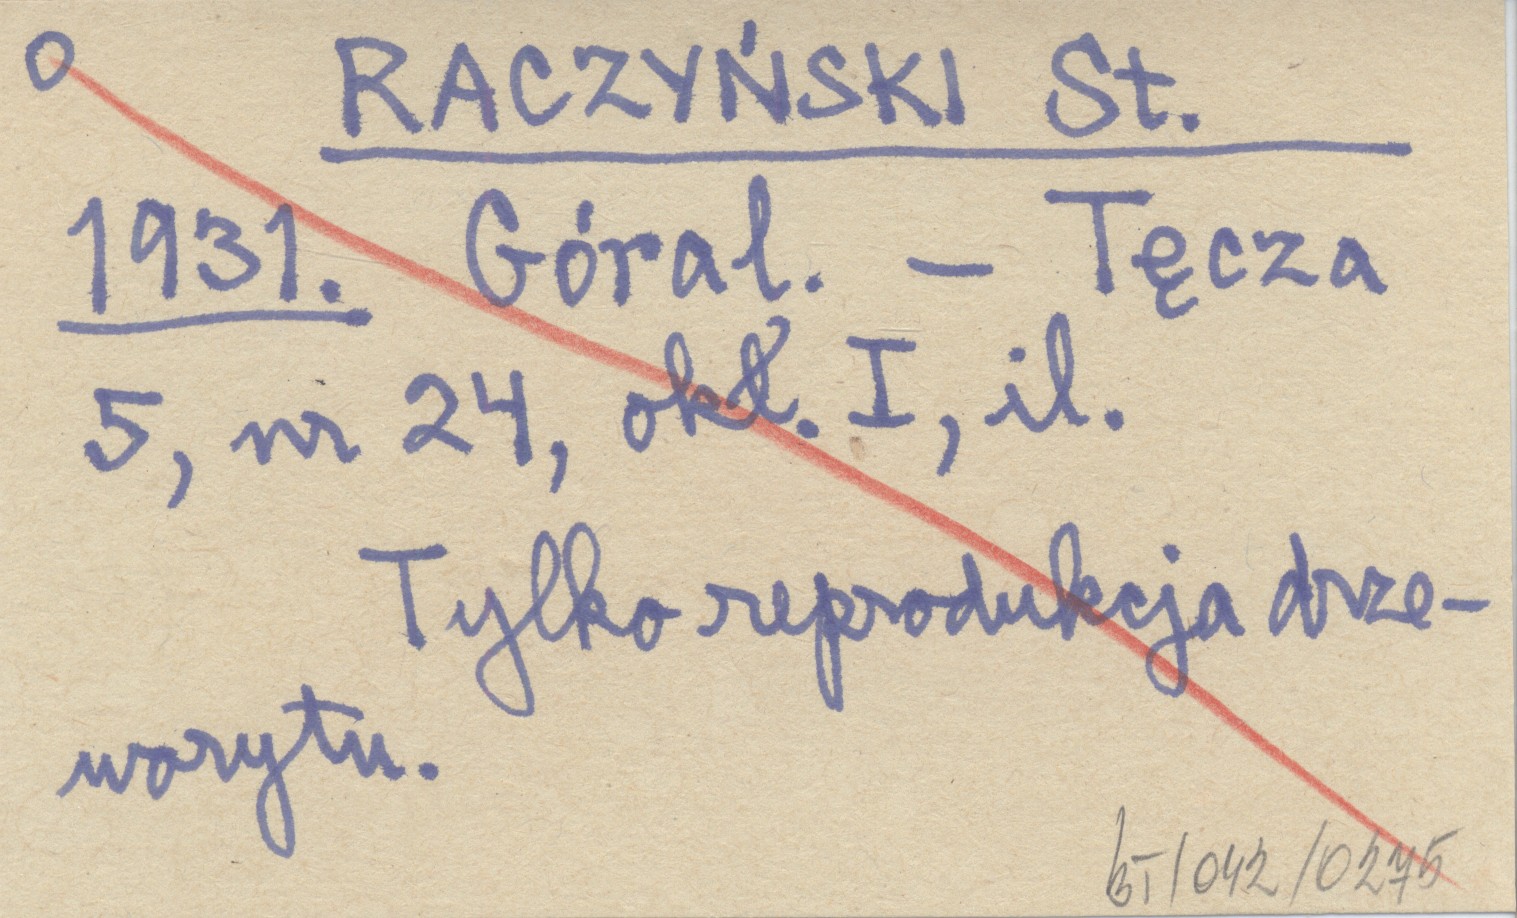 O RACZYŃSKI St.
1931. Góral. - Tęcza
5, nr 24, okł. I, il.
Tylko reprodukcja drze-
worytu.
BT/042/0275